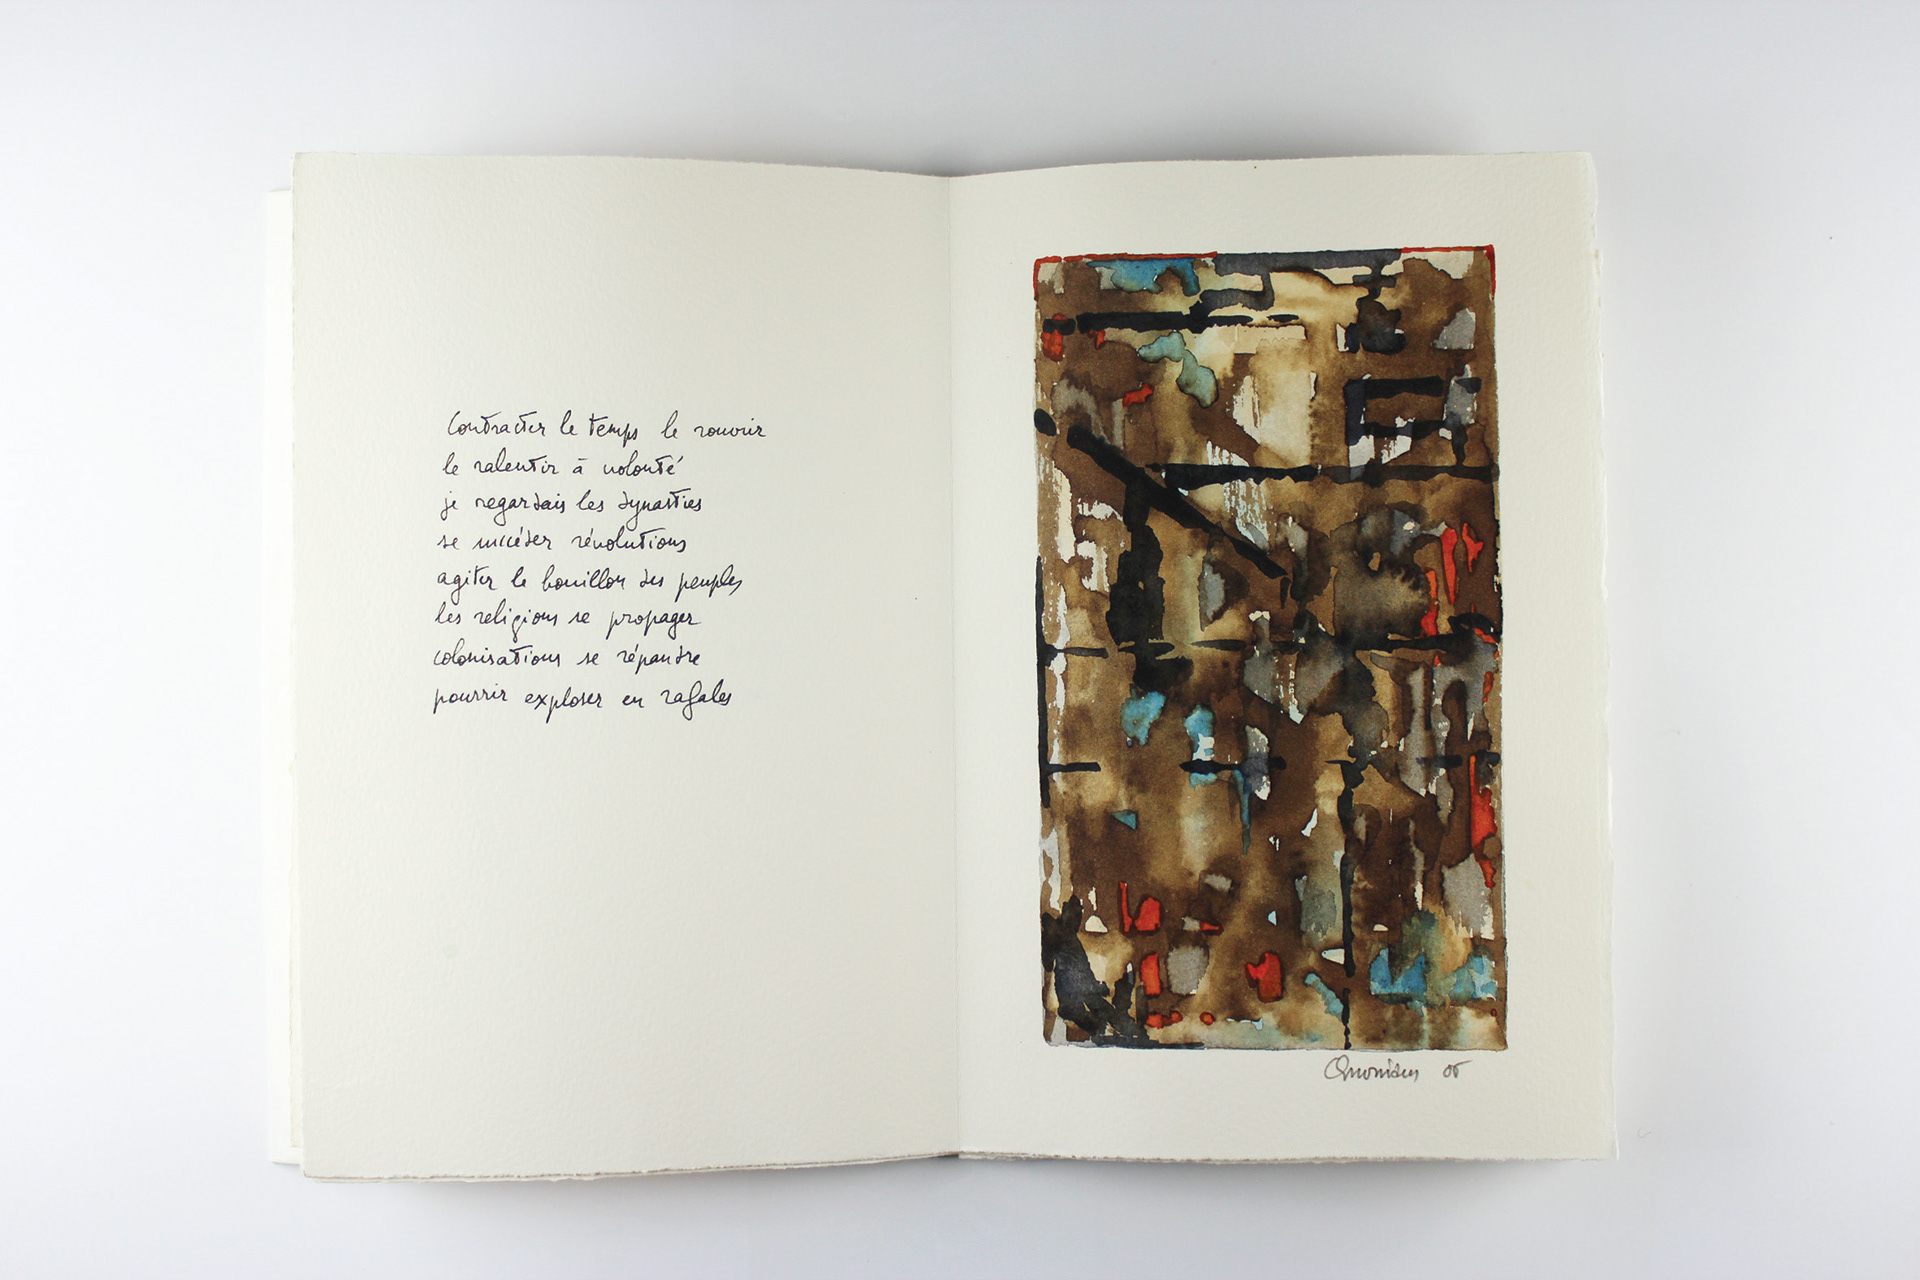 Contracter le temps le rouvrir
le ralentir à volonté
je regardais les dynasties
se succéder révolutions
agiter le bouillon des peuples
les religions se propager
colonisations se répandre
pourrir exploser en rafales